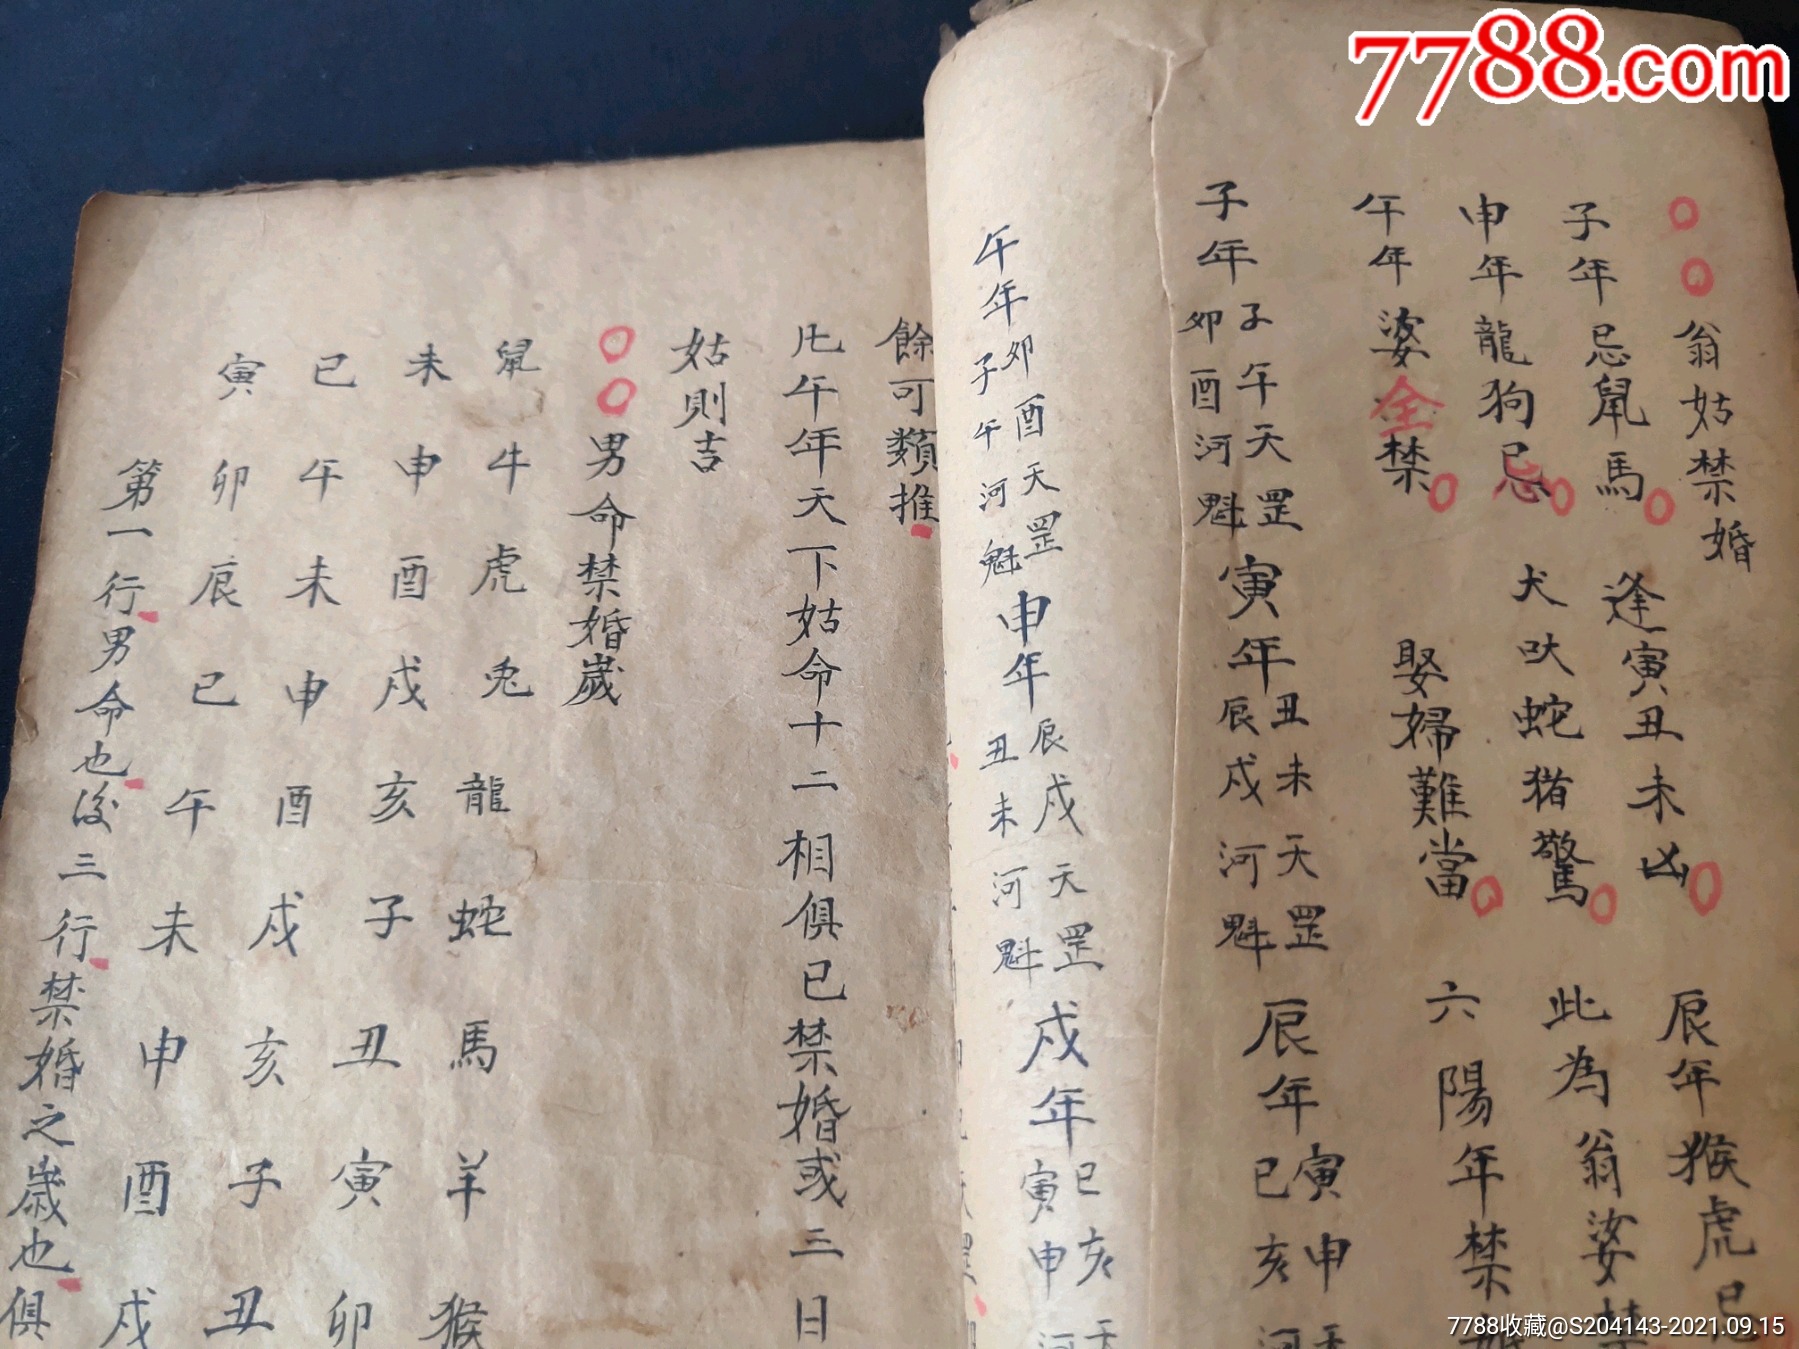 7788.com
翁姑禁婚
子年忌鼠馬 逢寅丑未凶 辰年猴虎巳
申年龍狗忌 犬吠蛇猪驚 此為翁婆禁
午年婆全禁 娶婦難當 六陽年禁婚
子年 子午天罡 卯酉河魁 寅年 丑未天罡 辰戌河魁 辰年 寅申 巳亥河
午年 卯酉天罡 子午河魁 申年 辰戌天罡 丑未河魁 戌年 巳亥天 寅申河
餘可類推
午年天下姑命十二相俱已禁婚或三日
姑則吉
男命禁婚歲
鼠牛虎兔龍蛇馬羊猴
未申酉戌亥子丑寅卯
巳午未申酉戌亥子丑
寅卯辰巳午未申酉戌
第一行男命也後三行禁婚之歲也俱
7788收藏@S204143-2021.09.15